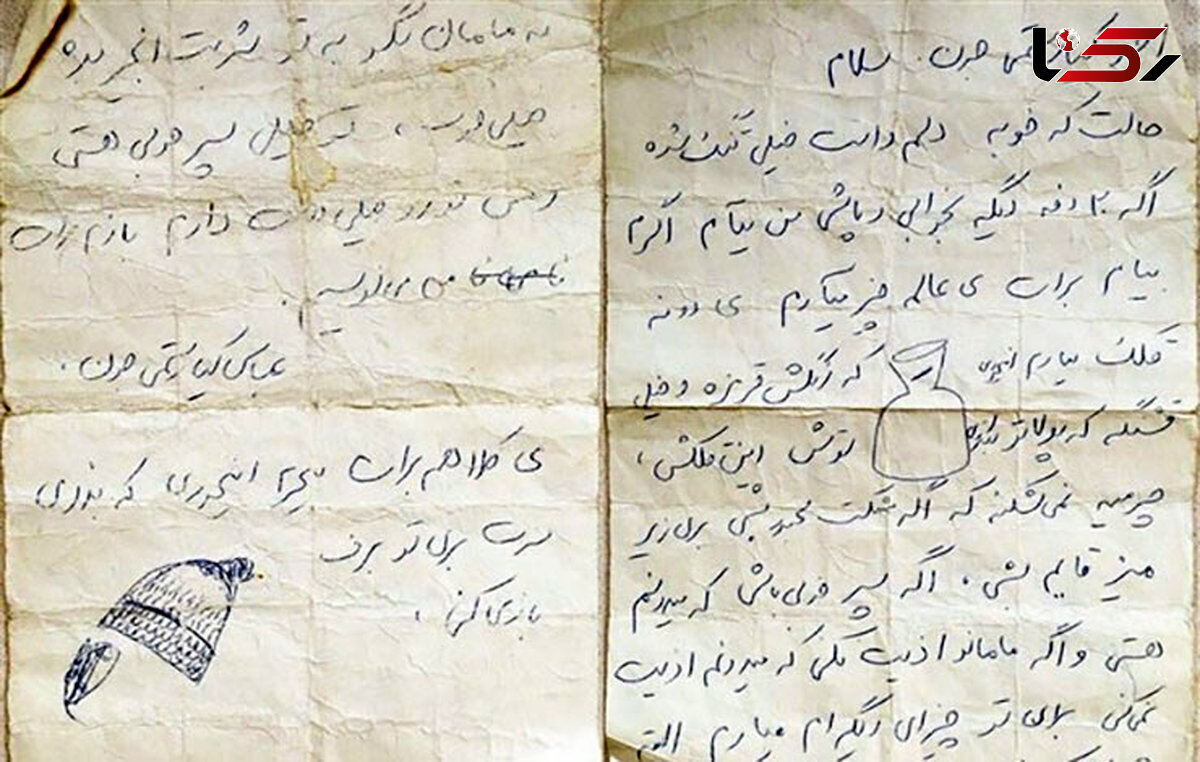 رکنا
کیارستمی جون. سلام
حالت که خوبه دلم واست خیلی تنگ شده
اگه ۲۰ دفه دیگه بخوابی و پاشی من میآم اگرم
بیام برات ی عالمه چیز میآرم ی دونه
قلک میارم اینجوری که رنگش قرمزه و خیلی
قشنگه که پولاتو بندازی توش این قلکش،
نمی‌شکنه که اگه شکست مجبور بشی بری زیر
میز قایم بشی. اگه پسر خوبی باشی که میدونم
هستی و اگه مامانو اذیت نکنی که میدونم اذیت
نمی‌کنی برای تو چیزای دیگه‌ام میارم
به مامان بگو به تو شربت انجیر بده
تو خیلی پسر خوبی هستی
تو رو خیلی دوست دارم بازم برات
می‌نویسم.
عباس کیارستمی جون.
ی کلاهم برات میخرم اینجوری که بذاری
سرت بری تو برف
بازی کنی.